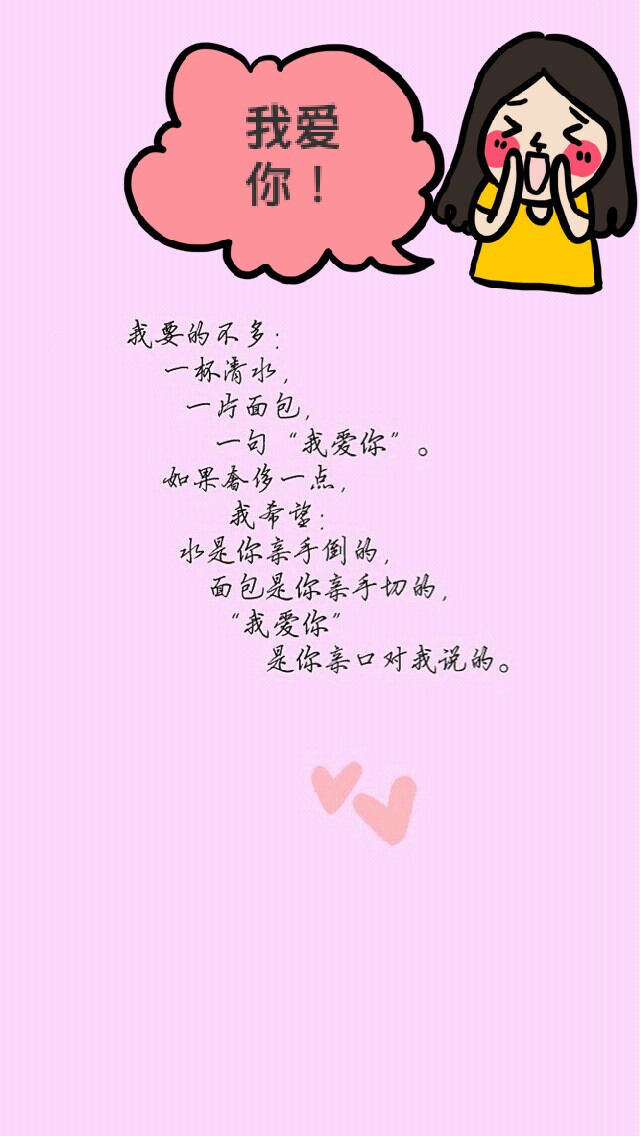 我爱
你！
我要的不多：
一杯清水，
一片面包，
一句“我爱你”。
如果奢侈一点，
我希望：
水是你亲手倒的，
面包是你亲手切的，
“我爱你”
是你亲口对我说的。